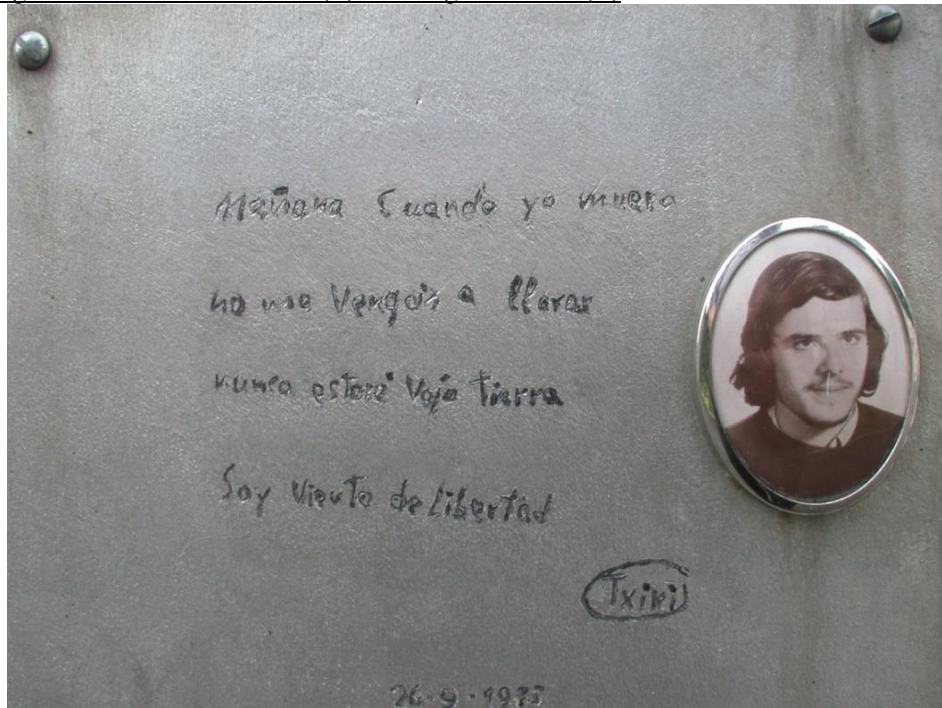 Mañana Cuando yo muera
no me Vengais a llorar
nunca estaré Vajo tierra
Soy Viento de libertad
Txiki
26-9-1975